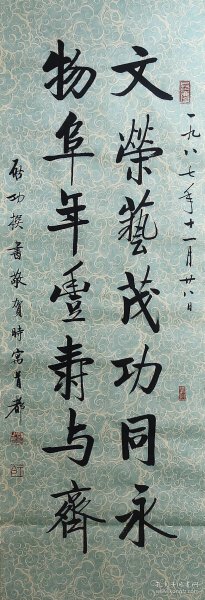 一九八七年十一月廿八日
文榮藝茂功同永
物阜年豊壽与齊
啟功撰書敬賀時寓首都